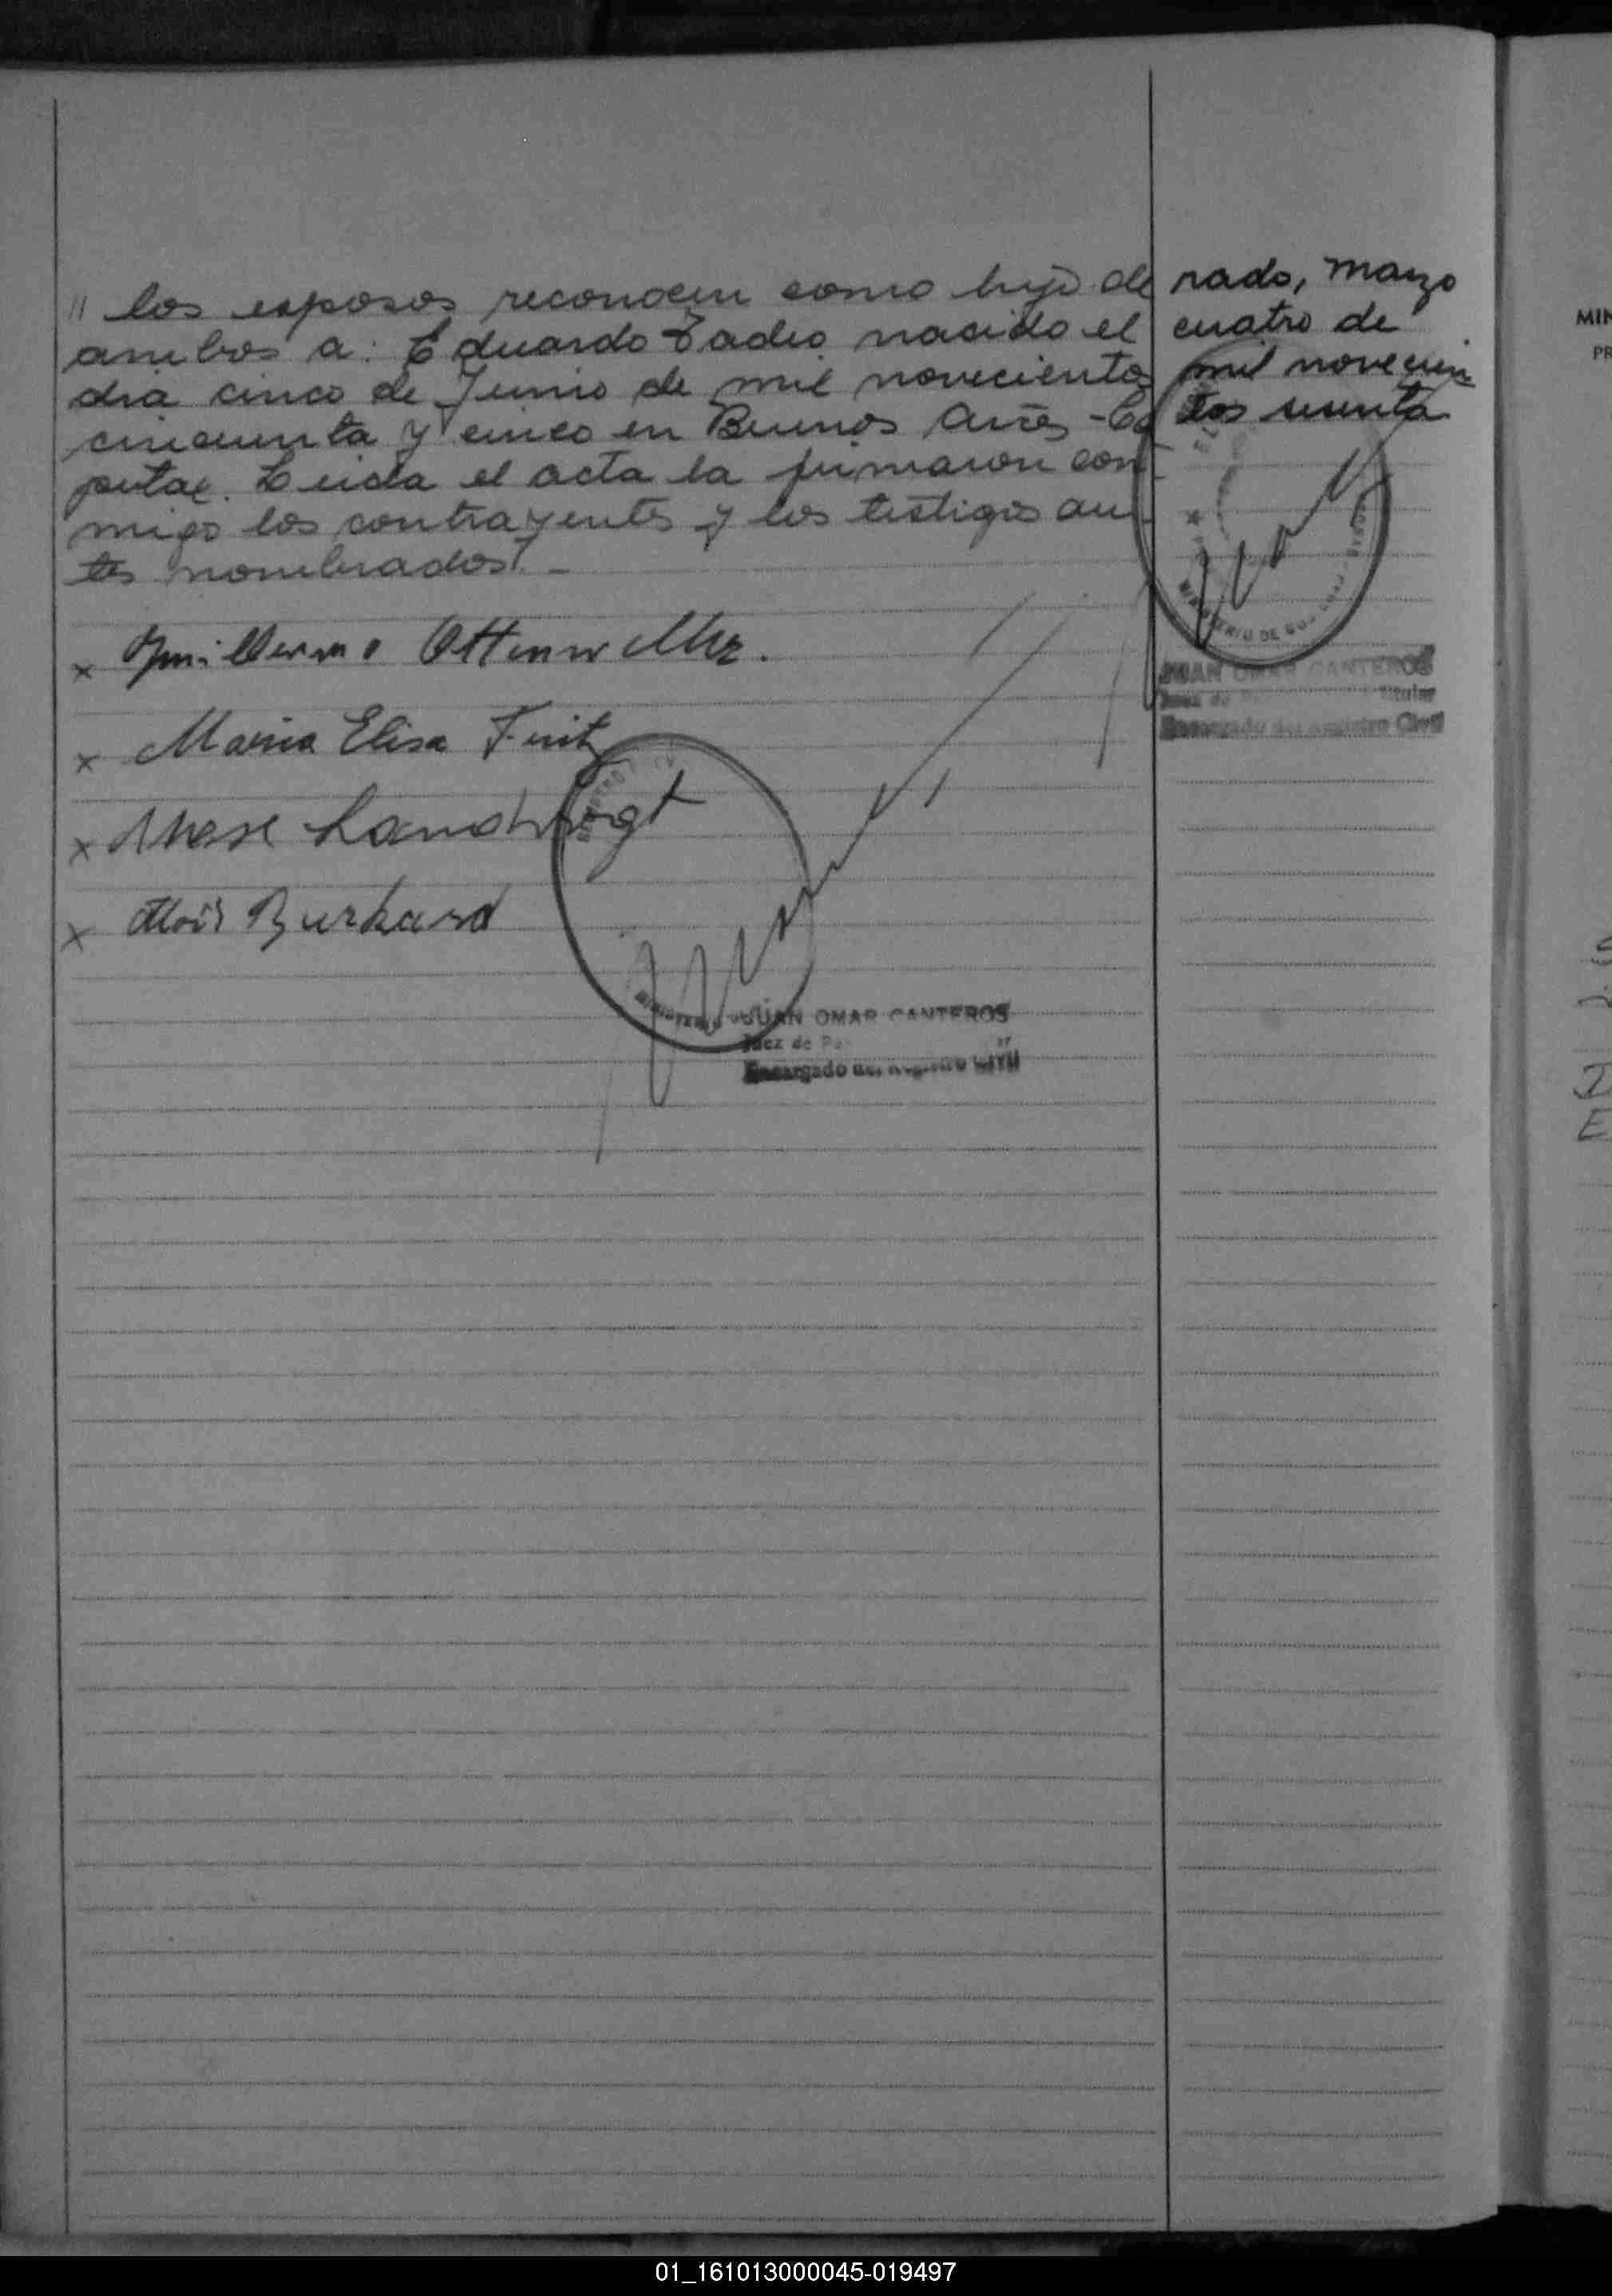 " los esposos reconocen como hijo de
ambos a: Eduardo Tadeo nacido el
dia cinco de Junio de mil novecientos
cincuenta y cinco en Buenos Aires - Ca
pital. Leida el acta la firmaron con
migo los contrayentes y los testigos an
tes nombrados. -
x Guillermo
x Maria Elisa Fritz
x Landvogt
x Alois Burkard
JUAN OMAR CANTEROS
Juez de
Encargado del Registro Civil
rado, Marzo
cuatro de
mil novecien
tos sesenta
MINISTERIO DE
JUAN OMAR CANTEROS
Juez de Titular
Encargado del Registro Civil
MIN
PR
01_161013000045-019497